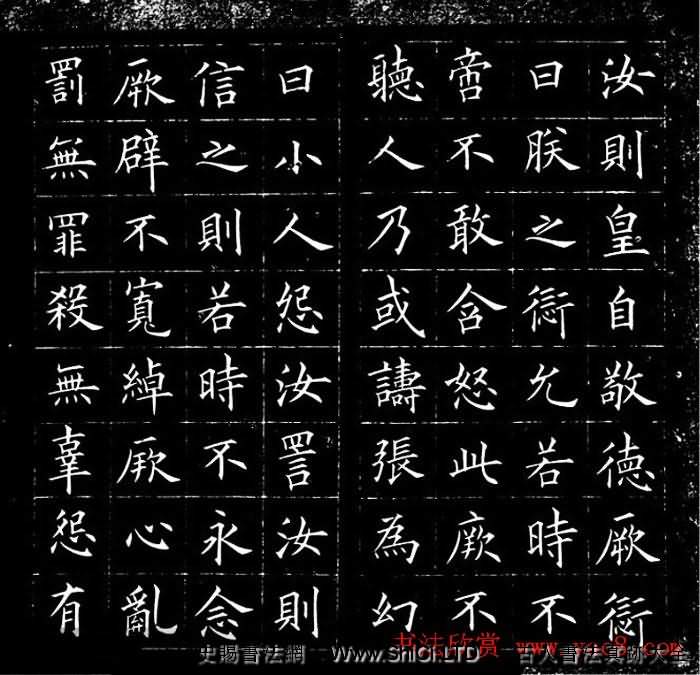 汝則皇自敬德厥愆
曰朕之愆允若時不
啻不敢含怒此厥不
聽人乃或譸張為幻
曰小人怨汝詈汝則
信之則若時不永念
厥辟不寬綽厥心亂
罰無罪殺無辜怨有
书法欣赏 www.yac8.com
史賜書法網 www.ShiCi.LTD 古人書法真跡大全